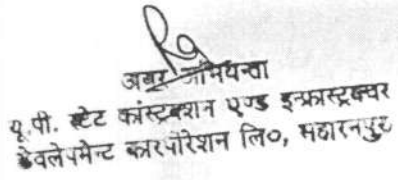 अवर अभियन्ता
यू.पी. स्टेट कांस्ट्रक्शन एण्ड इन्फ्रास्ट्रक्चर
डेवलेपमेन्ट कारपोरेशन लि०, सहारनपुर